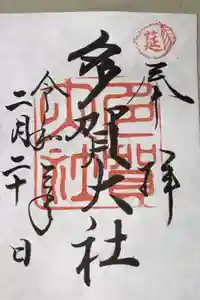 奉拝
多賀大社
令和三年
二月二十日
延
多賀大社